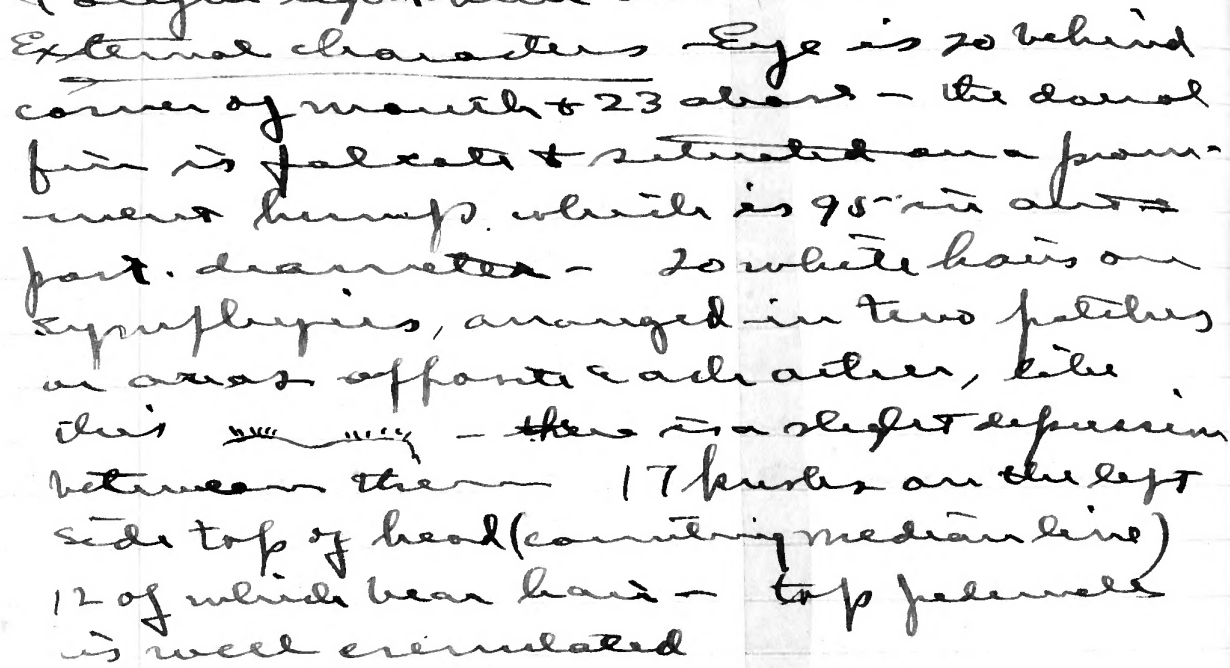 External characters Eye is 20 behind
corner of mouth & 23 above - the dorsal
fin is falcate & situated on a prom-
inent hump which is 95 in ant-
post. diameter - 20 white hairs on
symphysis, arranged in two patches
or areas opposite each other, like
this - there is a slight depression
between them 17 knobs on the left
side top of head (counting median line)
12 of which bear hair - top peduncle
is well crenulated